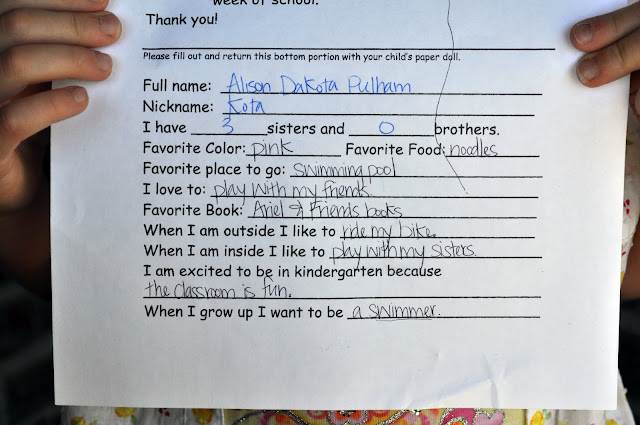 week of school.
Thank you!
Please fill out and return this bottom portion with your child's paper doll.
Full name: Alison Dakota Pulham
Nickname: Kota
I have 3 sisters and 0 brothers.
Favorite Color: pink Favorite Food: noodles
Favorite place to go: swimming pool
I love to: play with my friends.
Favorite Book: Ariel & Friends books
When I am outside I like to ride my bike.
When I am inside I like to play with my sisters.
I am excited to be in kindergarten because
the classroom is fun.
When I grow up I want to be a swimmer.